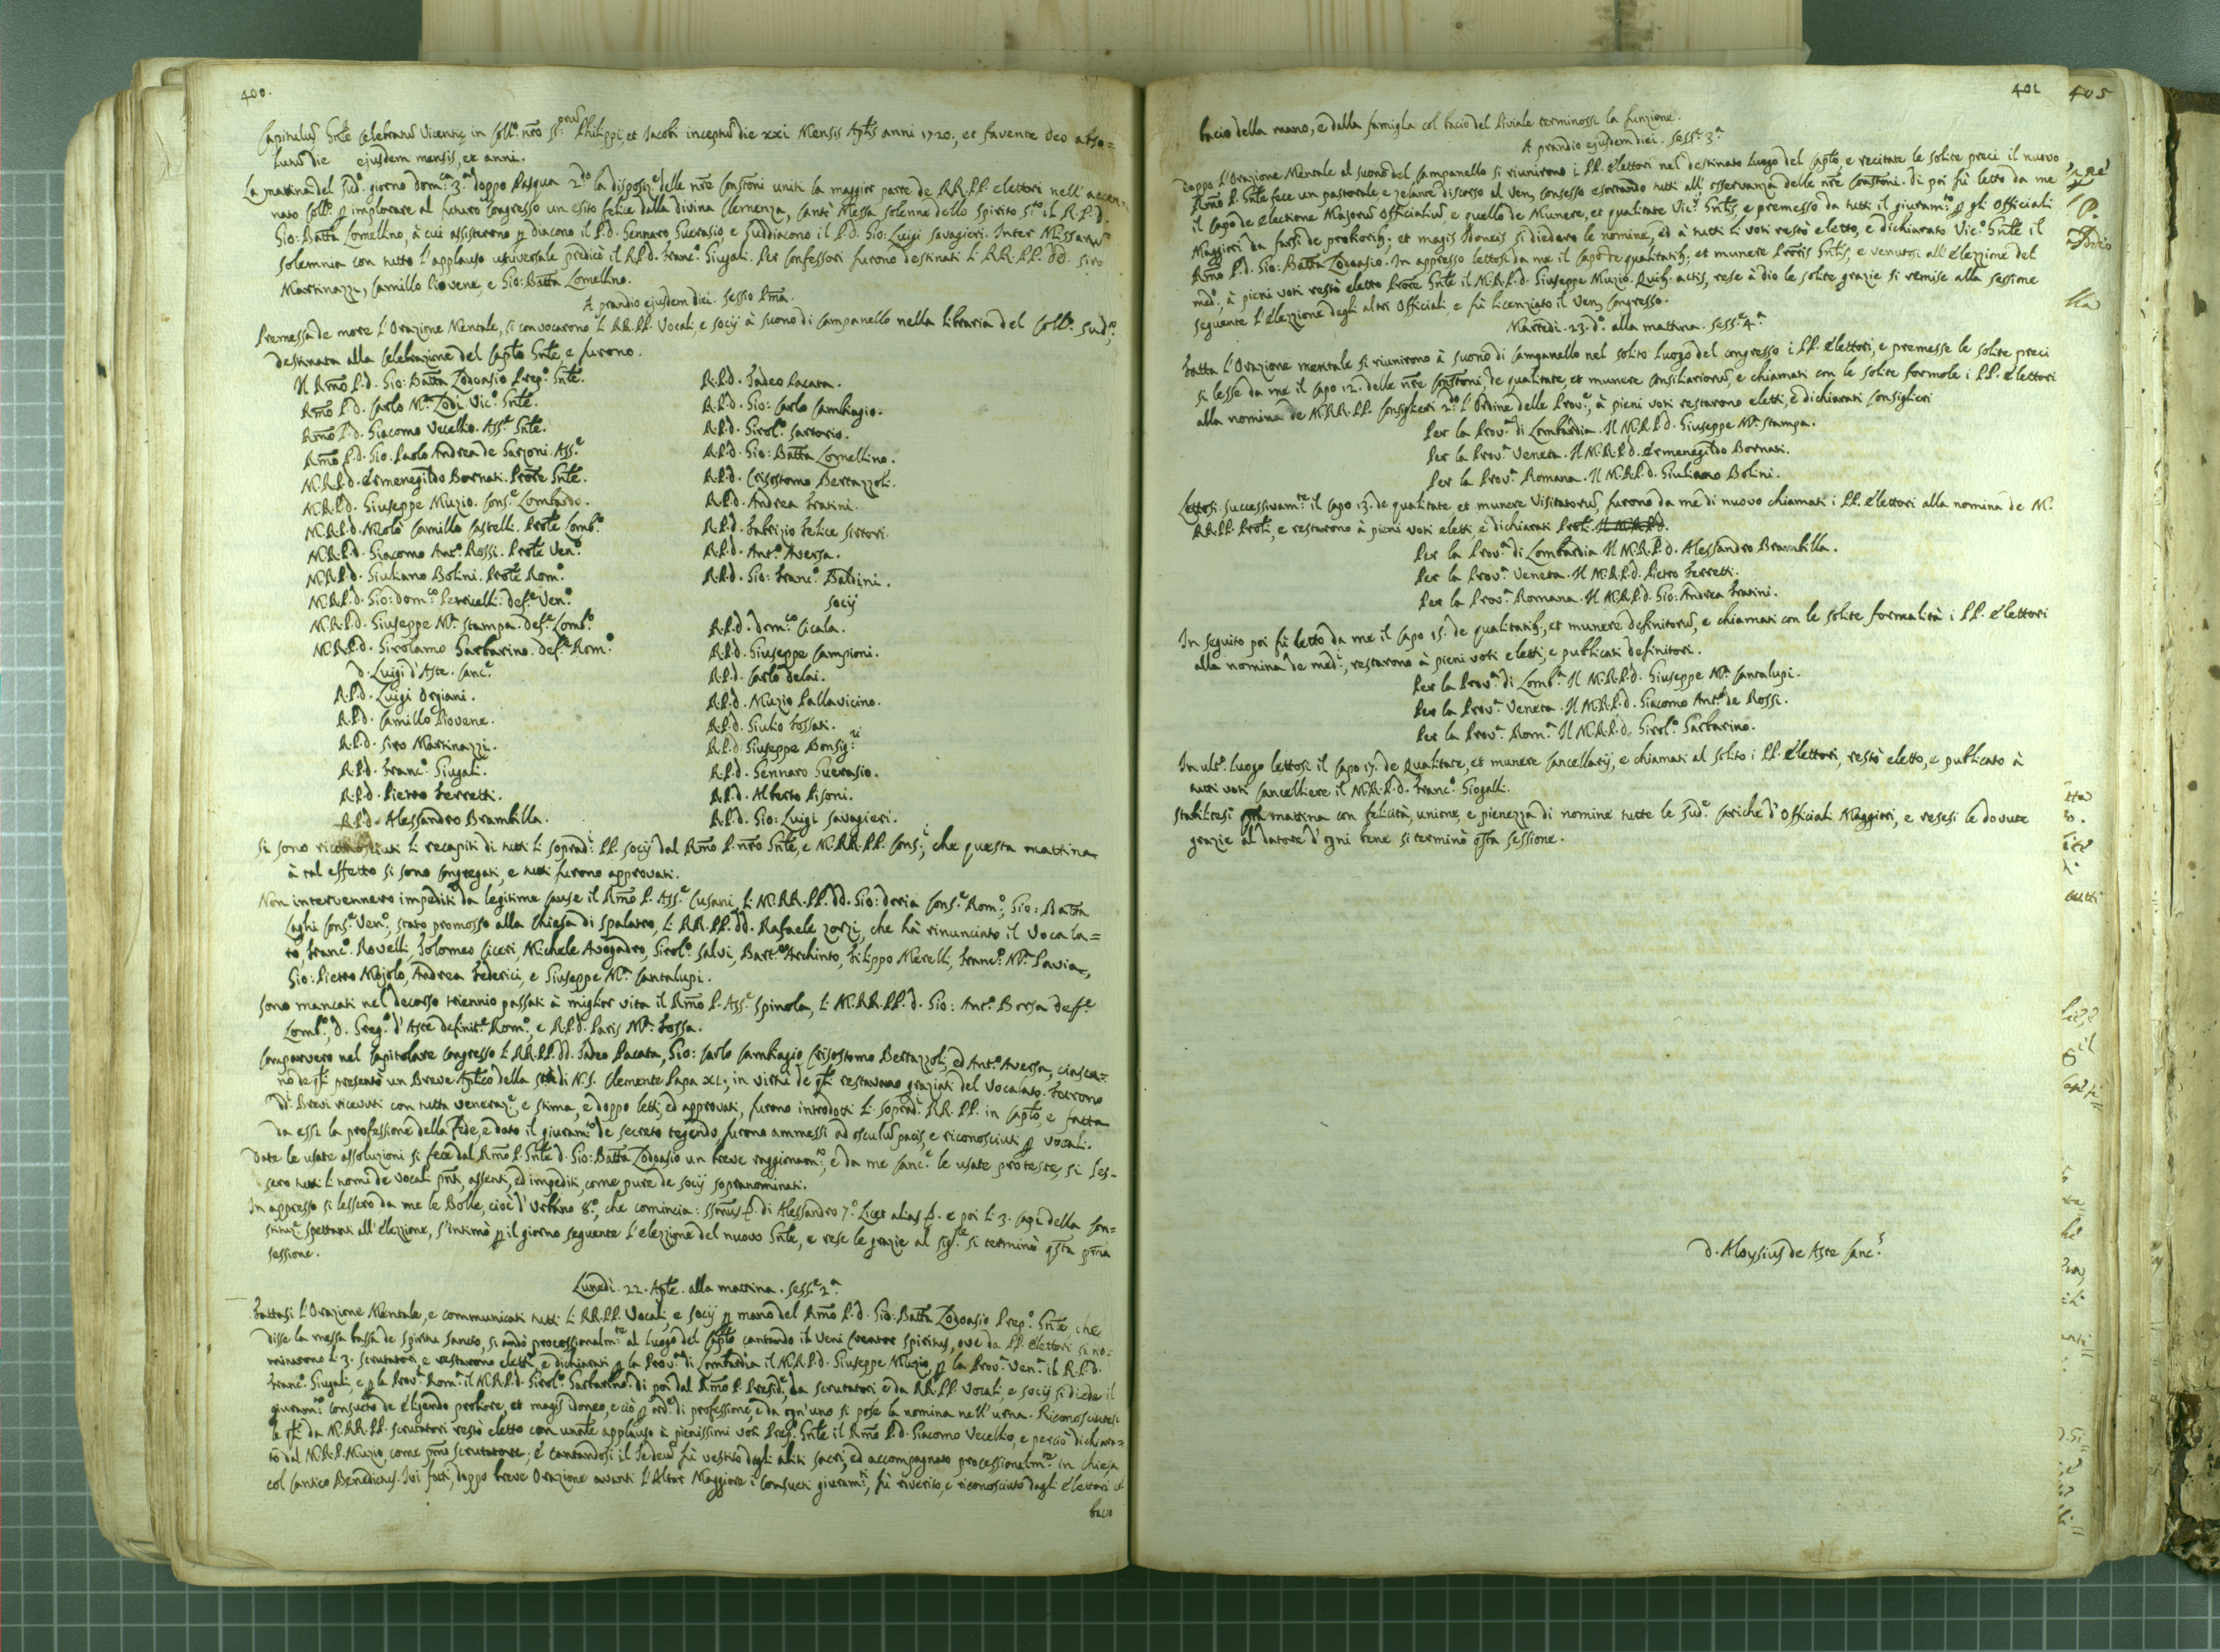 400.
Capitulũ Gñle Celebratũ Vicentię in Collº. nr̃o SS. Philippi, et Jacobi inceptũ die xxi Mensis Ap̃lis anni 1720, et favente Deo abso=
lutũ die ejusdem mensis, et anni.
La matina del sudº. giorno domca. 3ª. doppo Pasqua 2do. la disposize. delle nr̃e Consto̅ni uniti la maggior parte de RR.PP. elettori nell'accen=
nato Collº. ꝑ implorare al futuro Congresso un esito felice dalla divina Clemenza, cantò Messa solenne dello Spirito Sto. il R.P.D.
Gio: Batt̃a Lomellino, à cui assisterono ꝑ diacono il P.D. Gennaro Guerasio, e Suddiacono il P.D. Gio: Luigi Savagieri. Inter Missarũ
solemnia con tutto l'applauso universale predicò il R.P.D. Francº. Giugali. Per Confessori furono destinati li RR.PP. DD. Siro
Martinazzi, Camillo Piovene, e Gio: Batt̃a Lomellino.
A prandio ejusdem diei. Sessio Pm̃a.
Premessa de more l'Orazione Mentale, si convocarono li RR.PP. Vocali, e Socij à suono di Campanello nella libraria del Collº. sudº.,
destinata alla Celebrazione del Cap̃lo Gñle, e furono.
Il Rm̃o P.D. Gio: Batt̃a Lodoasio Prepº. Gñle.
Rm̃o P.D. Carlo Mª. Lodi Vicº. Gñle.
Rm̃o P.D. Giacomo Vecellio. Asse. Gñle.
Rm̃o P.D. Gio: Paolo Andrea de Garzoni. Asse.
M.R.P.D. Ermenegildo Bornati. Pro̅re Gñle.
M.R.P.D. Giuseppe Muzio. Conse. Lombardo.
M.R.P.D. Nicolò Camillo Castelli. Prole Lombº.
M.R.P.D. Giacomo Antº. Rossi. Prole Venº.
M.R.P.D. Giuliano Bolini. Prole Romº.
M.R.P.D. Gio: Domco. Perricelli. Defe. Venº.
M.R.P.D. Giuseppe Mª. Stampa. Defe. Lombº.
M.R.P.D. Girolamo Garbarino. Defe. Romº.
D. Luigi d'Aste. Cance.
R.P.D. Luigi Orgiani.
R.P.D. Camillo Piovene.
R.P.D. Siro Martinazzi.
R.P.D. Francº. Giugali.
R.P.D. Pietro Ferretti.
R.P.D. Alessandro Brambilla.
R.P.D. Tadeo Pacata.
R.P.D. Gio: Carlo Cambiagio.
R.P.D. Girolº. Sartorio.
R.P.D. Gio: Batt̃a Lomellino.
R.P.D. Crisostomo Bertazzoli.
R.P.D. Andrea Fratini.
R.P.D. Fabrizio Felice Sirtori.
R.P.D. Antº. Aversa.
R.P.D. Gio: Francº. Baldini.
Socij
R.P.D. Domco. Cicala.
R.P.D. Giuseppe Campioni.
R.P.D. Carlo Delai.
R.P.D. Muzio Pallavicino.
R.P.D. Giulio Fossati.
R.P.D. Giuseppe Bonsigri.
R.P.D. Gennaro Guerasio.
R.P.D. Alberto Pisoni.
R.P.D. Gio: Luigi Savagieri.
Si sono riconosciuti li recapiti di tutti li sopradi. PP. Socij dal Rm̃o P. nr̃o Gñle, e M.RR.PP. Consi., che questa mattina
à tal effetto si sono congregati, e tutti furono approvati.
Non intervennero impediti da legitime cause il Rm̃o P. Asse. Cusani, li M.RR.PP. DD. Gio: Doria Conse. Romº., Gio: Batt̃a
Laghi Conse. Venº., stato promosso alla Chiesa di Spalatro, li RR.PP. DD. Rafaele Zorzi, che hà rinunciato il Vocala=
to, Francº. Rovelli, Tolomeo Ciceri, Michele Avogadro, Girolº. Salvi, Barteo. Archinto, Filippo Merelli, Francº. Mª. Pavia,
Gio: Pietro Mojolo, Andrea Federici, e Giuseppe Mª. Cantalupi.
Sono mancati nel decorso triennio passati à miglior vita il Rm̃o P. Asse. Spinola, li M.RR.PP. D. Gio: Antº. Borsa deffe.
Lombº., D. Gregº. d'Aste definite. Romº., e R.P.D. Paris Mª. Fossa.
Comparvero nel Capitolare Congresso li RR.PP. DD. Tadeo Pacata, Gio: Carlo Cambiagio, Crisostomo Bertazzoli, ed Antº. Aversa, ciascu=
no de qli presentò un Breve Apl̃ico della Stà di N.S. Clemente Papa XI., in virtù de qli restavano graziati del Vocalato. Furono
di. Brevi ricevuti con tutta veneraze., e stima, e doppo letti, ed approvati, furono introdotti li sopradi. RR.PP. in Cap̃lo, e fatta
da essi la professione della Fede, e dato il giuramto. de secreto tegendo, furono ammessi ad osculũ pacis, e riconosciuti ꝑ Vocali.
Date le usate assoluzioni si fece dal Rm̃o P. Gñle D. Gio: Batt̃a Lodoasio un breve raggionamto., e da me Cance. le usate proteste, si les=
sero tutti li nomi de Vocali pñti, assenti, ed impediti, come pure de Socij sopranominati.
In appresso si lessero da me le Bolle, cioè d'Urbano 8º., che comincia: SSmus &. di Alessandro 7º. Licet alias &. e poi li 3. Capi della Con=
stituze. spettanti all'elezzione, s'intimò ꝑ il giorno seguente l'elezzione del nuovo Gñle, e rese le grazie al Sigre. si terminò qsta pm̃a
sessione.
Lunedì. 22. Ap̃le. alla mattina. Sesse. 2ª.
Fattasi l'Orazione Mentale, e communicati tutti li RR.PP. Vocali, e Socij ꝑ mano del Rm̃o P.D. Gio: Batt̃a Lodoasio Prepº. Gñle che
disse la messa bassa de Spiritu Sancto, si andò processionalmte. al luogo del Cap̃lo cantando il Veni Creator Spiritus, ove da PP. elettori si no=
minarono li 3. scrutatori, e restarono eletti, e dichiarati ꝑ la Prova. di Lombardia il M.R.P.D. Giuseppe Muzio, ꝑ la Prova. Vena. il R.P.D.
Francº. Giugali, e ꝑ la Prova. Roma. il M.R.P.D. Girolº. Garbarino. Di poi dal Rm̃o P. Preside., da scrutatori e da RR.PP. Vocali, e Socij si diede il
giuramto. consueto de eligendo probiore, et magis idoneo, e ciò ꝑ orde. di professione, e da ogn'uno si pose la nomina nell'urna. Riconosciutesi
le qli da M.RR.PP. scrutatori restò eletto con unanle applauso à pienissimi voti Prepº. Gñle il Rm̃o P.D. Giacomo Vecellio, e perciò dichiara=
to dal M.R.P. Muzio, come pm̃o scrutatore; e cantandosi il Te Deum fù vestito degli abiti sacri, ed accompagnato processionalmte. in Chiesa
col cantico Benedictus. Ivi fatti, doppo breve Orazione avanti l'Altar Maggiore i consueti giuramti., fù riverito, e riconosciuto dagli elettori col
bacio
401
bacio della mano, e dalla famiglia col bacio del Piviale terminossi la funzione.
A prandio ejusdem diei. Sesse. 3ª.
Doppo l'Orazione Mentale al suono del Campanello si riunirono i PP. elettori nel destinato luogo del Cap̃lo, e recitate le solite preci il nuovo
Rm̃o P. Gñle fece un pastorale e zelante discorso al Ven. Consesso esortando tutti all'osservanza delle nr̃e Consto̅ni. Di poi fù letto da me
il Capo de electione Majorũ Officialiũ e quello de Munere, et qualitate Vicij. Gñlis, e premesso da tutti il giuramto. ꝑ gli Officiali
Maggiori da farsi de probiorib., et magis Idoneis si diedero le nomine, ed à tutti li voti restò eletto, e dichiarato Vicº. Gñle il
Rm̃o P.D. Gio: Batt̃a Lodoasio. In appresso lettosi da me il Capo de qualitatib., et munere Pro̅ris Gñlis, e venutosi all'elezzione del
medº., à pieni voti restò eletto Pro̅re Gñle il M.R.P.D. Giuseppe Muzio. Quib. actis, rese à Dio le solite grazie si remise alla sessione
seguente l'elezzione degli altri Officiali, e fù licenziato il Ven. Congresso.
Martedì. 23. dº. alla mattina. Sesse. 4ª.
Fatta l'Orazione mentale si riunirono à suono di campanello nel solito luogo del congresso i PP. elettori, e premesse le solite preci
si lesse da me il Capo 12. delle nr̃e Consto̅ni de qualitate, et munere Consiliariorũ, e chiamati con le solite formole i PP. elettori
alla nomina de M.RR.PP. Consiglieri 2do. l'Ordine delle Prove., à pieni voti restarono eletti, e dichiarati Consiglieri
Per la Prova. di Lombardia. Il M.R.P.D. Giuseppe Mª. Stampa.
Per la Prova. Veneta. Il M.R.P.D. Ermenegildo Bornati.
Per la Prova. Romana. Il M.R.P.D. Giuliano Bolini.
Lettosi successivamte. il Capo 13. de qualitate et munere Visitatorũ, furono da me di nuovo chiamati i PP. elettori alla nomina de M.
RR.PP. Proli, e restarono à pieni voti eletti, e dichiarati Proli. Il M.R.P.D.
Per la Prova. di Lombardia. Il M.R.P.D. Alessandro Brambilla.
Per la Prova. Veneta. Il M.R.P.D. Pietro Ferretti.
Per la Prova. Romana. Il M.R.P.D. Gio: Andrea Fratini.
In seguito poi fù letto da me il Capo 15. de qualitatib., et munere definitorũ, e chiamati con le solite formalità i PP. elettori
alla nomina de medi., restarono à pieni voti eletti, e publicati definitori.
Per la Prova. di Lomba. Il M.R.P.D. Giuseppe Mª. Cantalupi.
Per la Prova. Veneta. Il M.R.P.D. Giacomo Antº. de Rossi.
Per la Prova. Roma. Il M.R.P.D. Girolº. Garbarino.
In ultº. luogo lettosi il Capo 17. de Qualitate, et munere Cancellarij, e chiamati al solito i PP. elettori, restò eletto, e publicato à
tutti voti Cancelliere il M.R.P.D. Francº. Giogalli.
Stabilitesi qsta mattina con felicità, unione, e pienezza di nomine tutte le sude. cariche d'Officiali Maggiori, e resesi le dovute
grazie al datore d'ogni bene si terminò qsta sessione.
D. Aloysius de Aste Cancs.
405